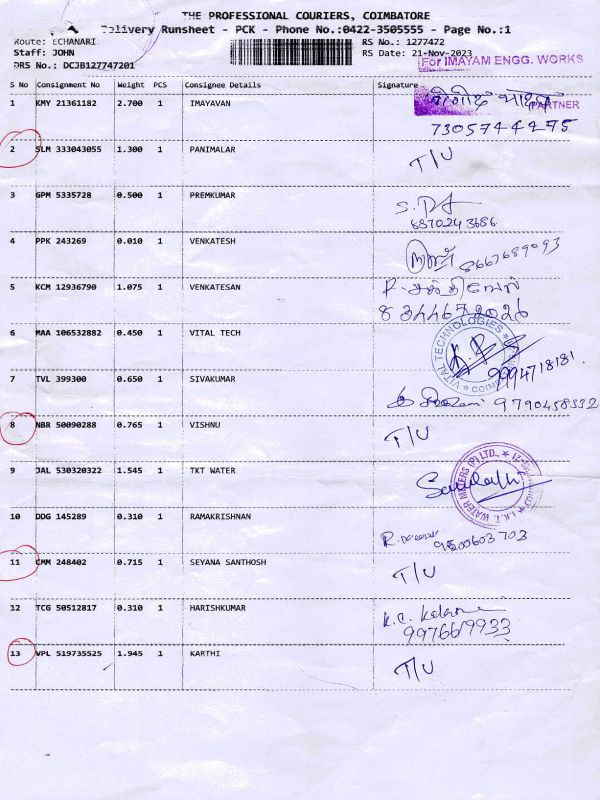 THE PROFESSIONAL COURIERS, COIMBATORE
Delivery Runsheet - PCK - Phone No.:0422-3505555 - Page No.:1
Route: ECHANARI
RS No.: 1277472
Staff: JOHN
RS Date: 21-Nov-2023
DRS No.: DCJB127747201
For IMAYAM ENGG. WORKS
S No Consignment No Weight PCS Consignee Details Signature
1 KMY 21361182 2.700 1 IMAYAVAN
PARTNER
7305744275
2 SLM 333043055 1.300 1 PANIMALAR T/U
3 GPM 5335728 0.500 1 PREMKUMAR
4 PPK 243269 0.010 1 VENKATESH 8667689093
5 KCM 12936790 1.075 1 VENKATESAN
6 MAA 106532882 0.450 1 VITAL TECH
VITAL TECHNOLOGIES
9994718181
7 TVL 399300 0.650 1 SIVAKUMAR
9790458332
8 NBR 50090288 0.765 1 VISHNU T/U
9 JAL 530320322 1.545 1 TKT WATER
10 DDG 145289 0.310 1 RAMAKRISHNAN
9500603703
11 CMM 248402 0.715 1 SEYANA SANTHOSH T/U
12 TCG 50512817 0.310 1 HARISHKUMAR
9976619933
13 VPL 519735525 1.945 1 KARTHI T/U